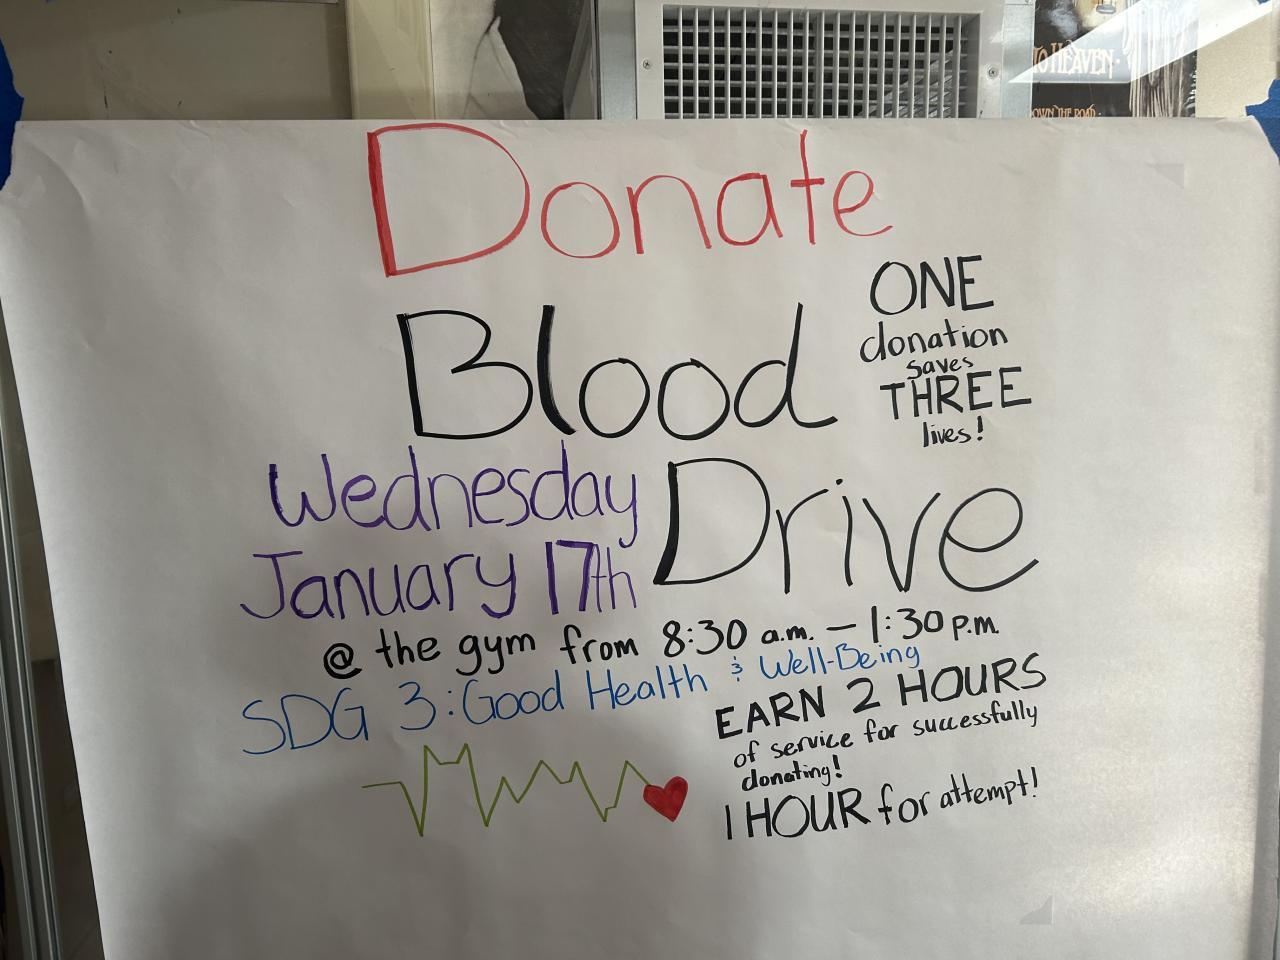 TO HEAVEN
DOWN THE ROAD
Donate
Blood
ONE
donation
saves
THREE
lives!
Wednesday
January 17th
Drive
@ the gym from 8:30 a.m. — 1:30 p.m.
SDG 3: Good Health & Well-Being
EARN 2 HOURS
of service for successfully
donating!
1 HOUR for attempt!